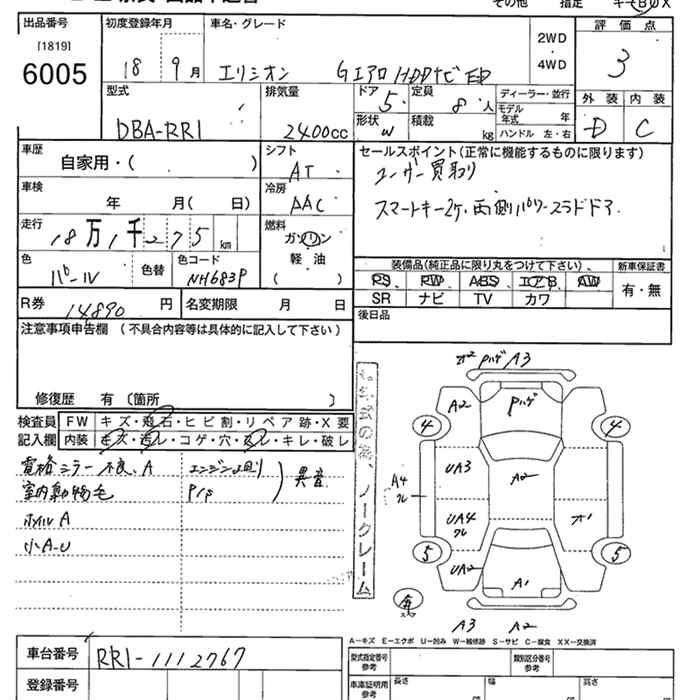 出品番号
[1819]
6005
初度登録年月
18 9月
車名・グレード
エリシオン GエアロHDDナビED
2WD
・
4WD
評価点
3
型式
DBA-RR1
排気量
2400cc
ドア
5
定員
8人
形状
W
積載
kg
ディーラー・並行
モデル年式 年
ハンドル 左・右
外装
D
内装
C
車歴
自家用・( )
シフト
AT
セールスポイント(正常に機能するものに限ります)
ユーザー買取り
スマートキー2ケ、両側パワースライドドア
車検
年 月( 日)
冷房
AAC
走行
18万1千275km
燃料
ガソリン
軽油
( )
色
パール
色替
色コード
NH683P
装備品(純正品に限り丸をつけて下さい)、
PS PW ABS エアB AW
SR ナビ TV カワ
新車保証書
有・無
R券
14890円
名変期限 月 日
後日品
注意事項申告欄 (不具合内容等は具体的に記入して下さい)
修復歴 有(箇所 )
検査員
記入欄
FW キズ・飛石・ヒビ割・リペア跡・X要
内装 キズ・汚レ・コゲ・穴・スレ・キレ・破レ
電格ミラー不良、A
エンジン廻り
室内動物毛
P/S
異音
ホイルA
小A-U
ノークレーム
Pハゲ A3
A2
Pハゲ
4
4
UA3
A2
A4
UA4
5
5
UA2
A1
A3 A2
A−キズ E−エクボ U−凹み W−補修跡 S−サビ C−腐食 XX−交換済
車台番号
RR1-1112767
登録番号
型式指定番号
参考
類別区分番号
参考
車庫証明用
参考
長さ
幅
高さ